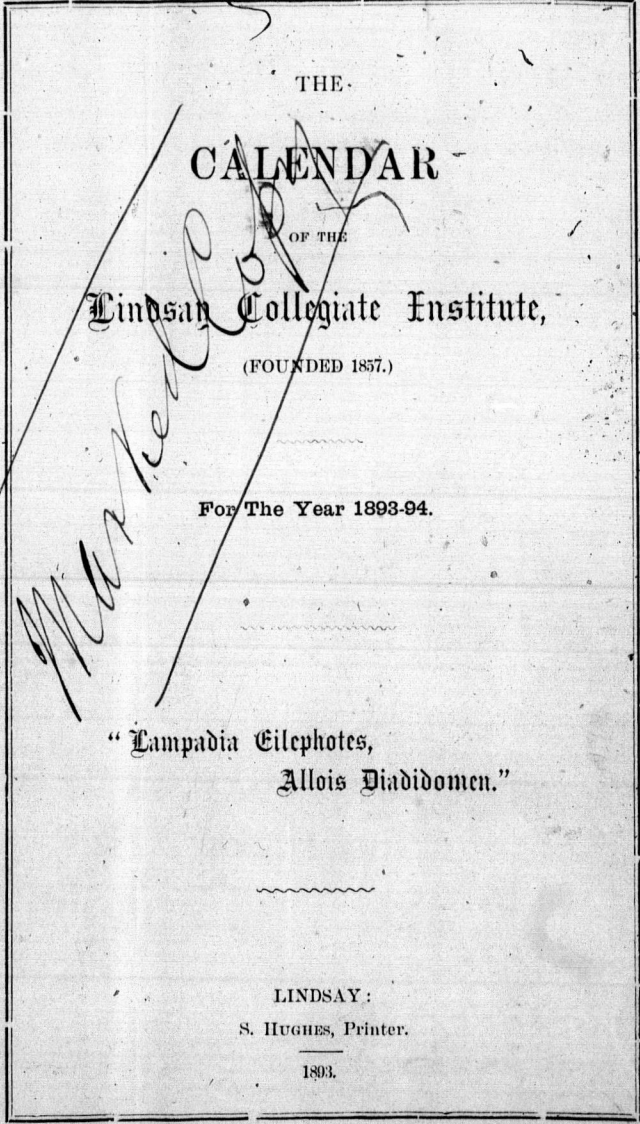 THE
CALENDAR
OF THE
Lindsay Collegiate Institute,
(FOUNDED 1857.)
For The Year 1893-94.
"Lampadia Eilephotes,
Allois Diadidomen."
LINDSAY:
S. HUGHES, Printer.
1893.
Marked Copy